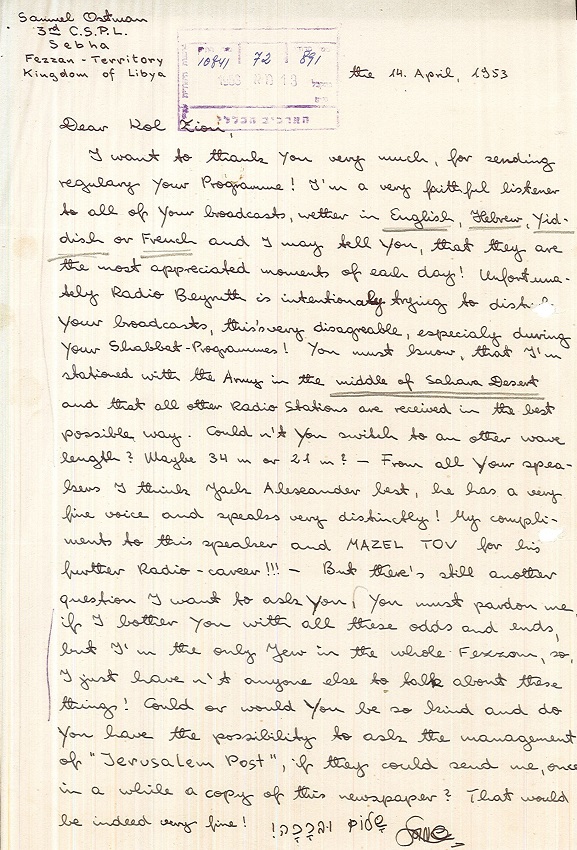 Samuel Ostman
3rd C.S.P.L.
Sebha
Fezzan - Territory
Kingdom of Libya
10841 72 891
the 14. April, 1953
הארכיב הכללי
Dear Kol Zion,
I want to thank You very much, for sending
regulary Your Programme! I'm a very faithful listener
to all of Your broadcasts, wether in English, Hebrew, Yid-
dish or French and I may tell You, that they are
the most appreciated moments of each day! Unfortuna-
tely Radio Beyruth is intentionaly trying to
Your broadcasts, this's very disagreable, especialy during
Your Shabbat-Programmes! You must know, that I'm
stationed with the Army in the middle of Sahara Desert
and that all other Radio Stations are received in the best
possible way. Could n't You switch to an other wave
length? Maybe 34 m or 21 m? - From all Your spea-
kers I think Jack Alexander best, he has a very
fine voice and speaks very distinctly! My compli-
ments to this speaker and MAZEL TOV for his
further Radio-career!!! - But there's still another
question I want to ask You, You must pardon me,
if I bother You with all these odds and ends,
but I'm the only Jew in the whole Fezzan, so,
I just have n't anyone else to talk about these
things! Could or would You be so kind and do
You have the possibility to ask the management
of "Jerusalem Post", if they could send me, once
in a while a copy of this newspaper? That would
be indeed very fine! שלום וברכה!